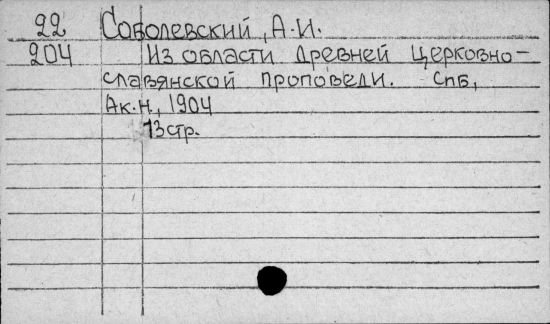 22 Соболевский, А.И.
204 Из области древней церковно-
славянской проповеди. Спб,
Ак.н., 1904
13 стр.